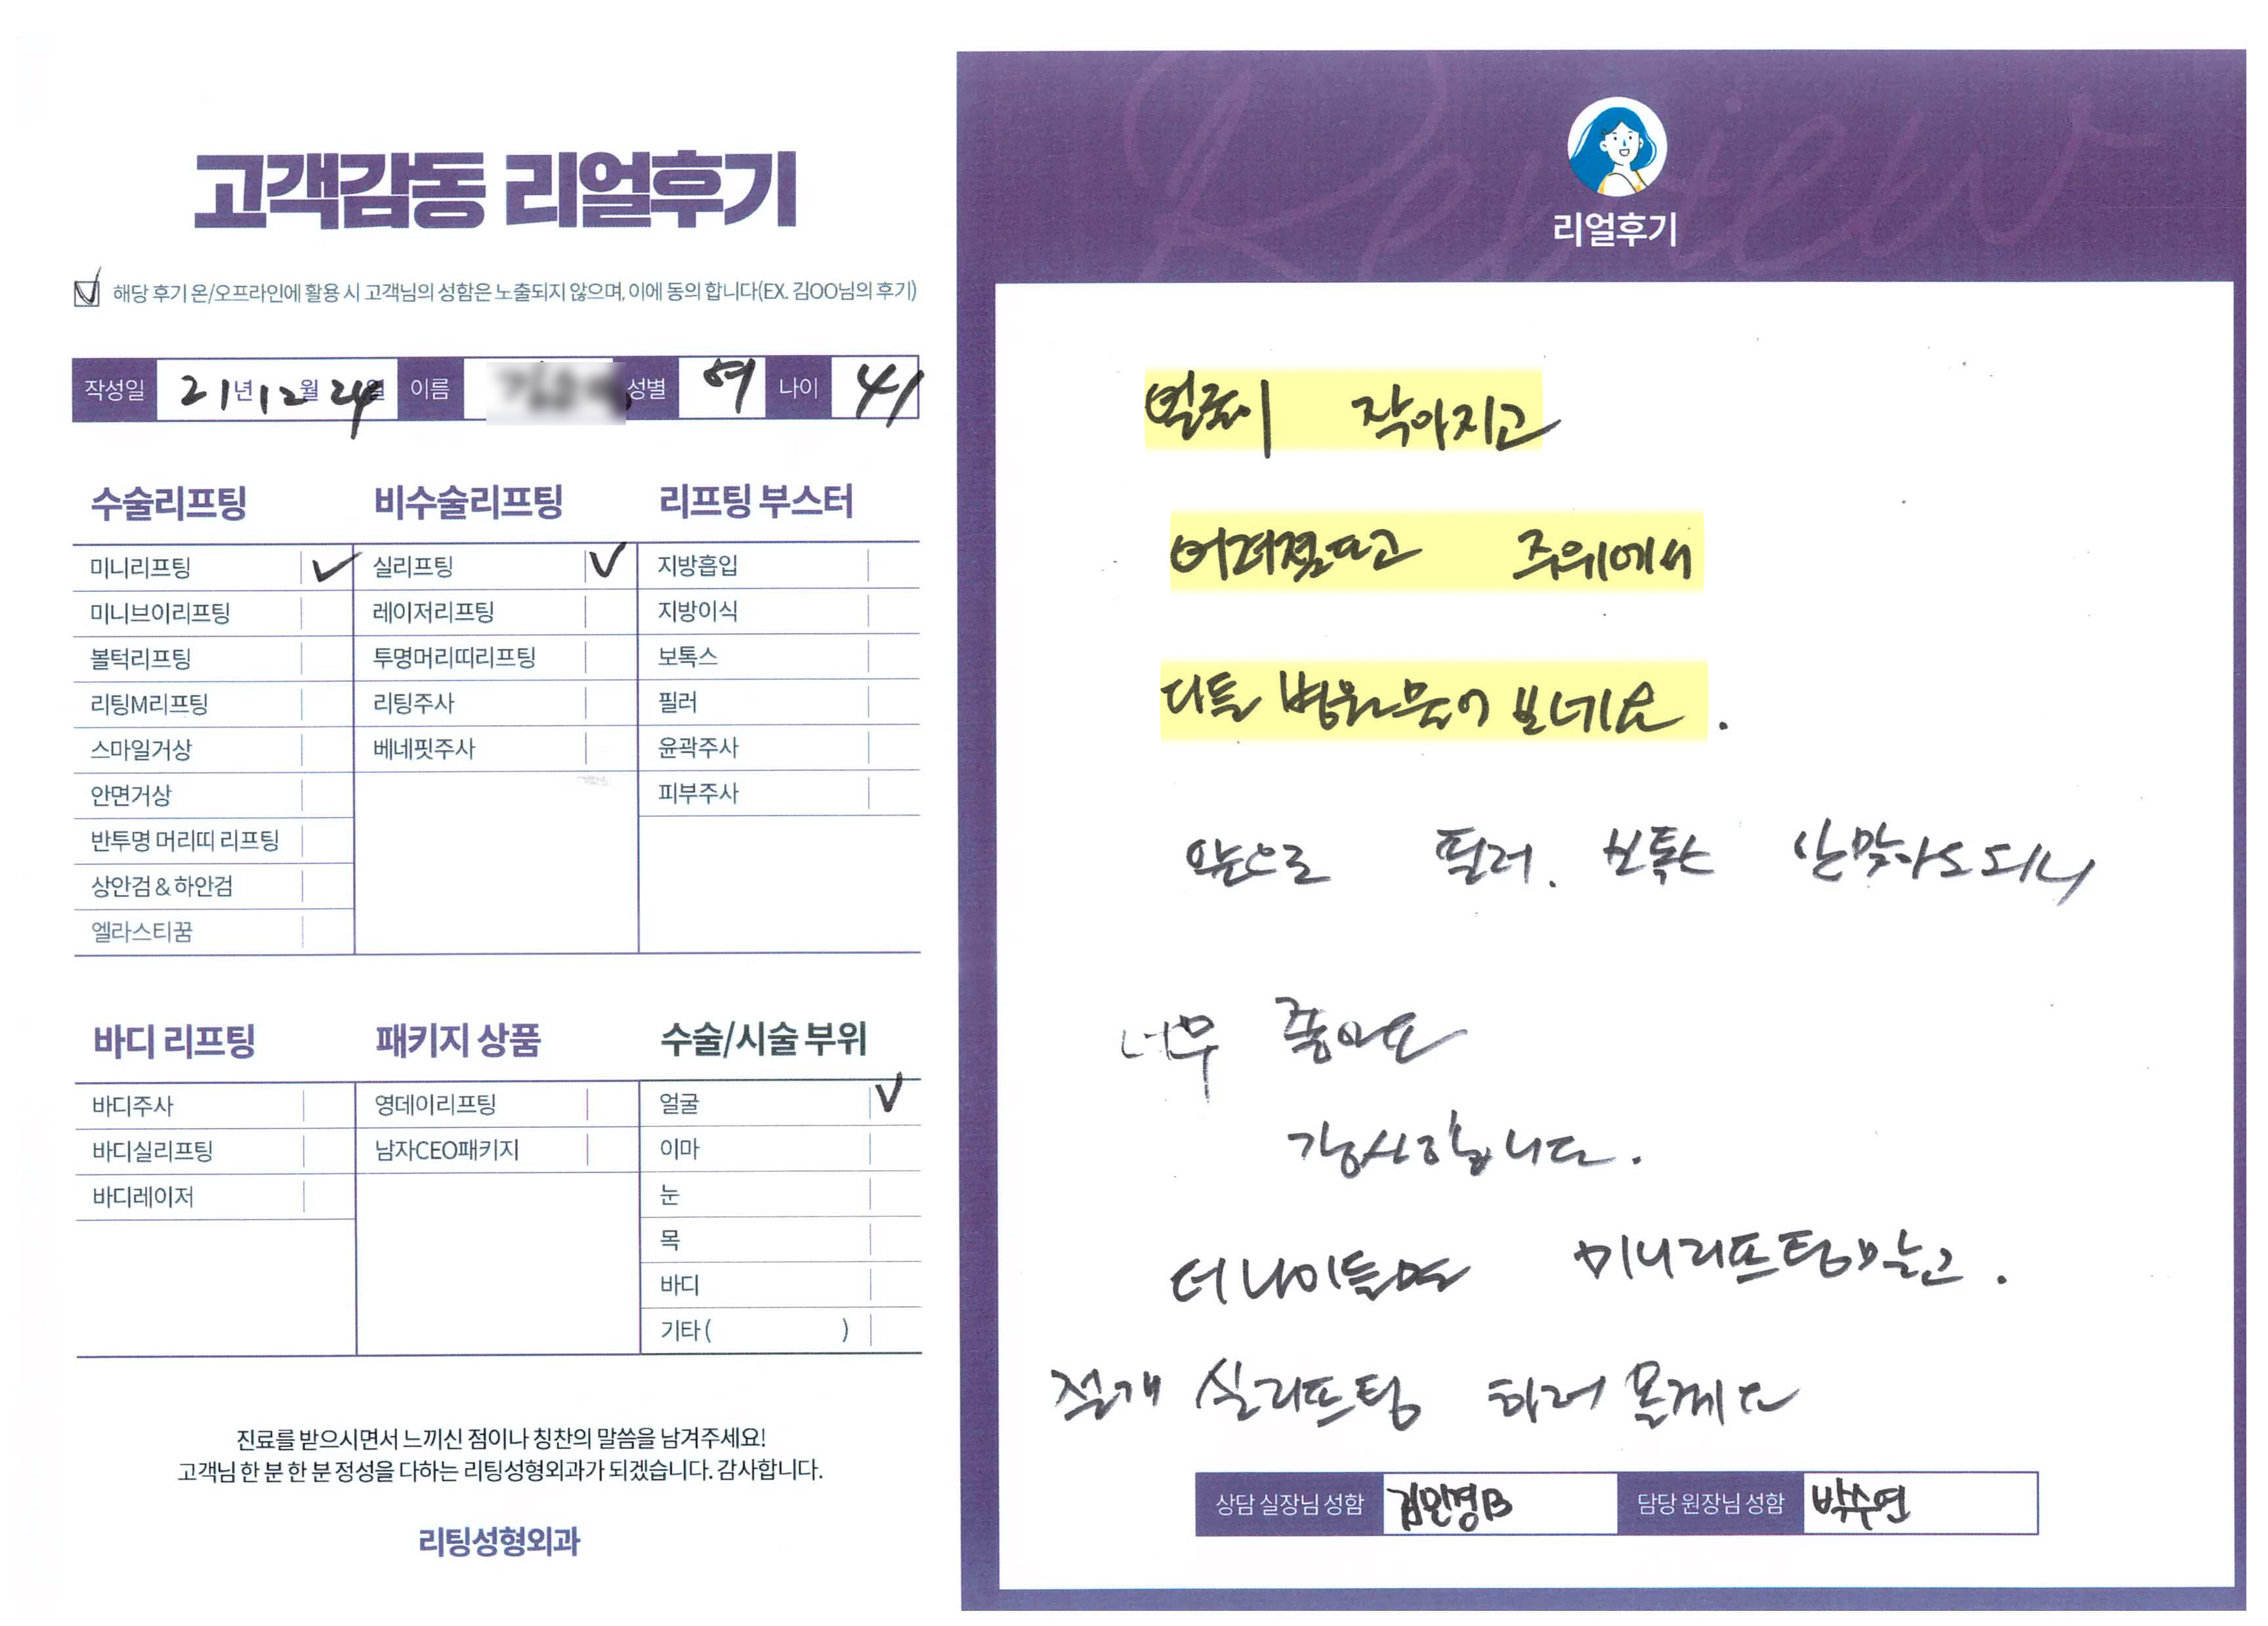 고객감동 리얼후기
해당 후기 온/오프라인에 활용 시 고객님의 성함은 노출되지 않으며, 이에 동의 합니다(EX. 김OO님의 후기)
작성일 21년 12월 24일 이름 성별 여 나이 41
수술리프팅
미니리프팅
미니브이리프팅
볼턱리프팅
리팅M리프팅
스마일거상
안면거상
반투명 머리띠 리프팅
상안검 & 하안검
엘라스티꿈
비수술리프팅
실리프팅
레이저리프팅
투명머리띠리프팅
리팅주사
베네핏주사
리프팅 부스터
지방흡입
지방이식
보톡스
필러
윤곽주사
피부주사
바디 리프팅
바디주사
바디실리프팅
바디레이저
패키지 상품
영데이리프팅
남자CEO패키지
수술/시술 부위
얼굴
이마
눈
목
바디
기타 ( )
진료를 받으시면서 느끼신 점이나 칭찬의 말씀을 남겨주세요!
고객님 한 분 한 분 정성을 다하는 리팅성형외과가 되겠습니다. 감사합니다.
리팅성형외과
Review
리얼후기
얼굴이 작아지고
어려졌다고 주위에서
다들 병원 물어 보네요.
앞으로 필러. 보톡스 안맞아도 되니
너무 좋아요
감사합니다.
더 나이들면 미니리프팅말고.
절개 실리프팅 하러 올께요
상담 실장님 성함 김민경B 담당 원장님 성함 박수연